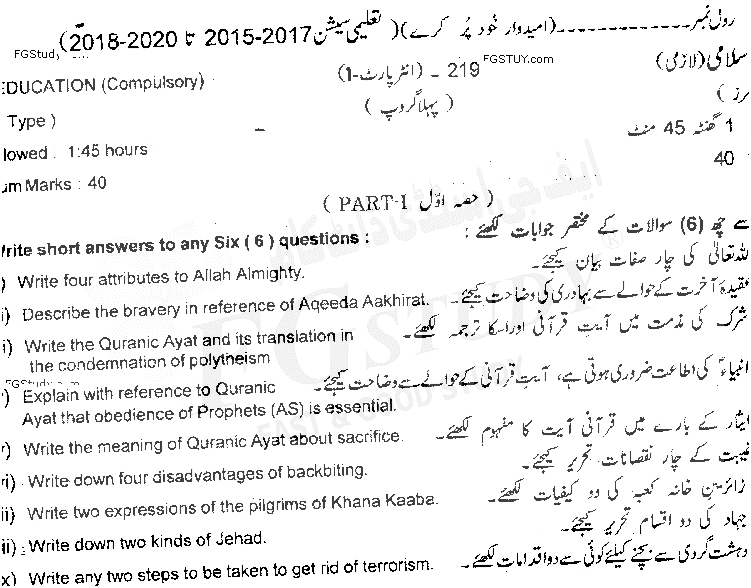 رول نمبر-------------(امیدوار خود پُر کرے)( تعلیمی سیشن 2017-2015 تا 2020-2018)
FGStudy.com
FGSTUY.com
سلامی (لازمی)
219 - (انٹر پارٹ-1)
EDUCATION (Compulsory)
(پہلا گروپ)
Type )
1 گھنٹہ 45 منٹ
lowed : 1:45 hours
40
um Marks : 40
( PART-I حصہ اوّل )
سے چھ (6) سوالات کے مختصر جوابات لکھئے :
rite short answers to any Six ( 6 ) questions :
للہ تعالیٰ کی چار صفات بیان کیجئے۔
) Write four attributes to Allah Almighty.
عقیدۂ آخرت کے حوالے سے بہادری کی وضاحت کیجئے۔
i) Describe the bravery in reference of Aqeeda Aakhirat.
شرک کی مذمت میں آیتِ قرآنی اور اسکا ترجمہ لکھئے۔
i) Write the Quranic Ayat and its translation in
the condemnation of polytheism
انبیاءؑ کی اطاعت ضروری ہوتی ہے، آیتِ قرآنی کے حوالے سے وضاحت کیجئے۔
) Explain with reference to Quranic
Ayat that obedience of Prophets (AS) is essential.
ایثار کے بارے میں قرآنی آیت کا مفہوم لکھئے۔
) Write the meaning of Quranic Ayat about sacrifice.
غیبت کے چار نقصانات تحریر کیجئے۔
i) Write down four disadvantages of backbiting.
زائرینِ خانہ کعبہ کی دو کیفیات لکھئے۔
ii) Write two expressions of the pilgrims of Khana Kaaba.
جہاد کی دو اقسام تحریر کیجئے۔
ii) Write down two kinds of Jehad.
دہشت گردی سے بچنے کیلئے کوئی سے دو اقدامات لکھئے۔
x) Write any two steps to be taken to get rid of terrorism.
ایف جی اسٹڈی ڈاٹ کام
FGSTUDY
FAST & GOOD STUDY